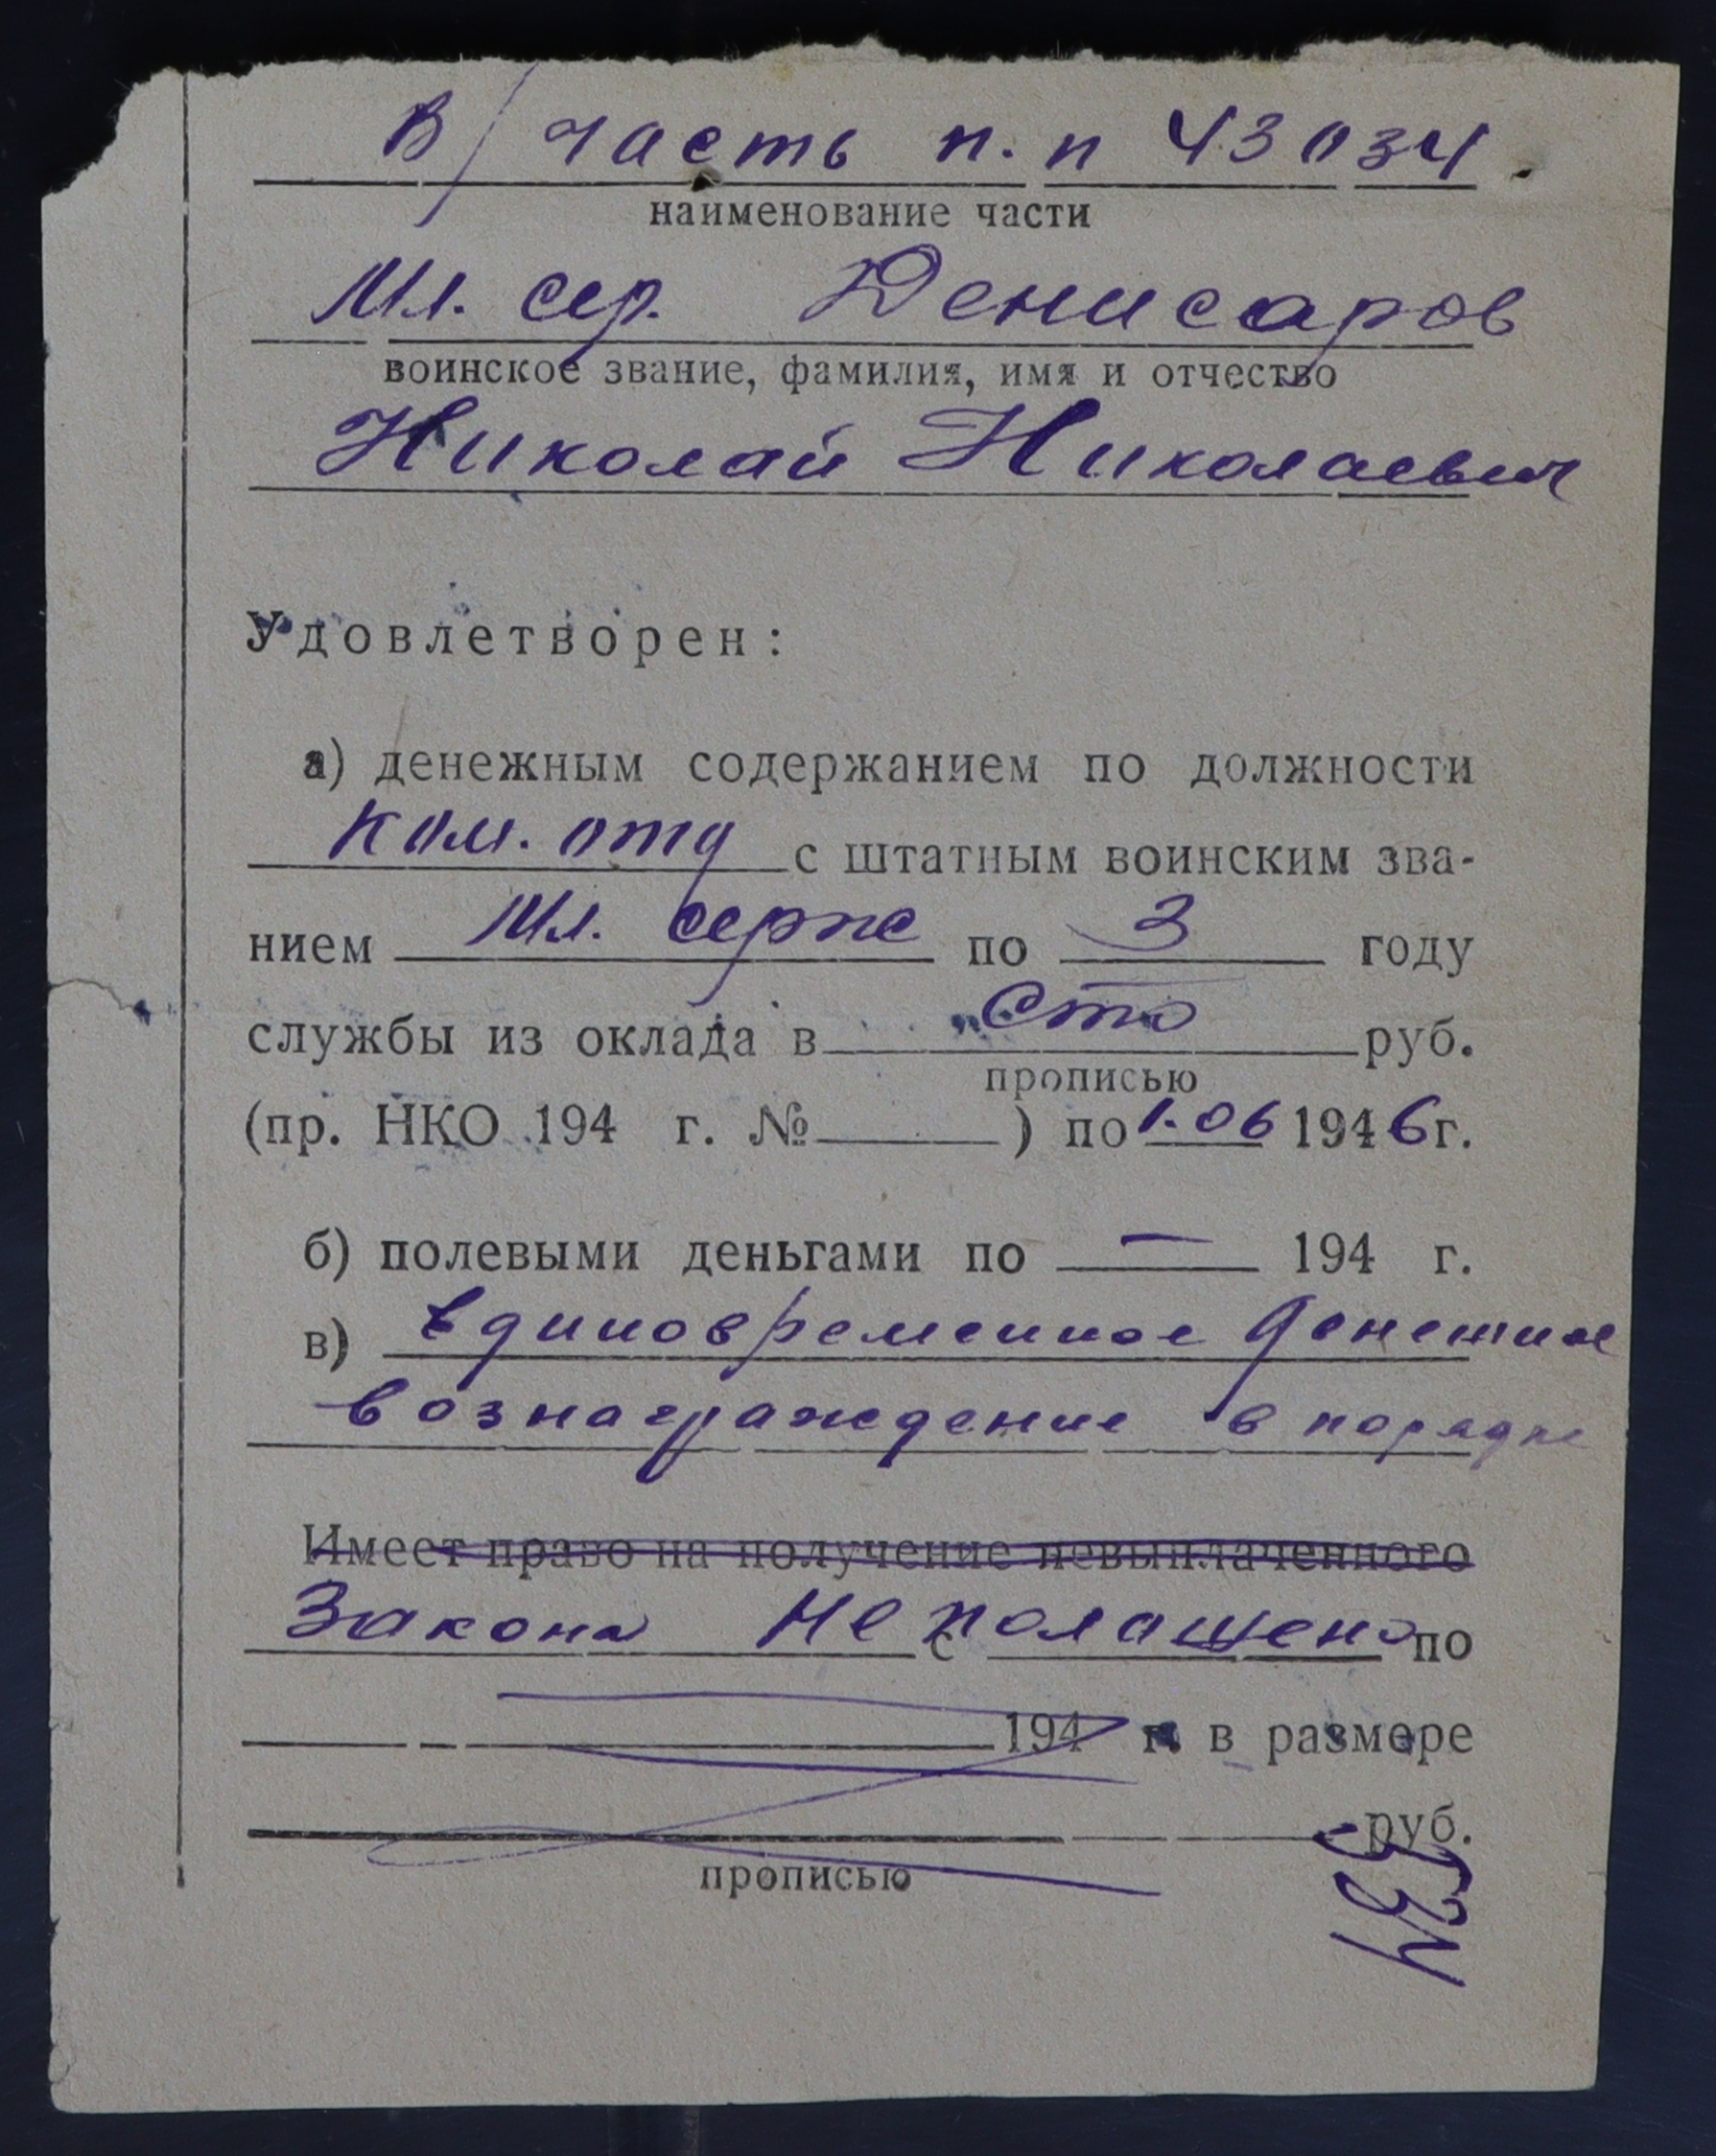 В/часть п.п 43034.
наименование части
Мл. сер. Денисаров
воинское звание, фамилия, имя и отчество
Николай Николаевич
Удовлетворен:
а) денежным содержанием по должности
Ком. отд с штатным воинским зва-
нием Мл. серж по 3 году
службы из оклада в Сто руб.
прописью
(пр. НКО 194 г. № ) по 1.06 1946 г.
б) полевыми деньгами по — 194 г.
в) Единовременное денежное
вознаграждение в порядке
Имеет право на получение невыплаченного
Закона не с полащено по
194 г. в размере
руб.
прописью